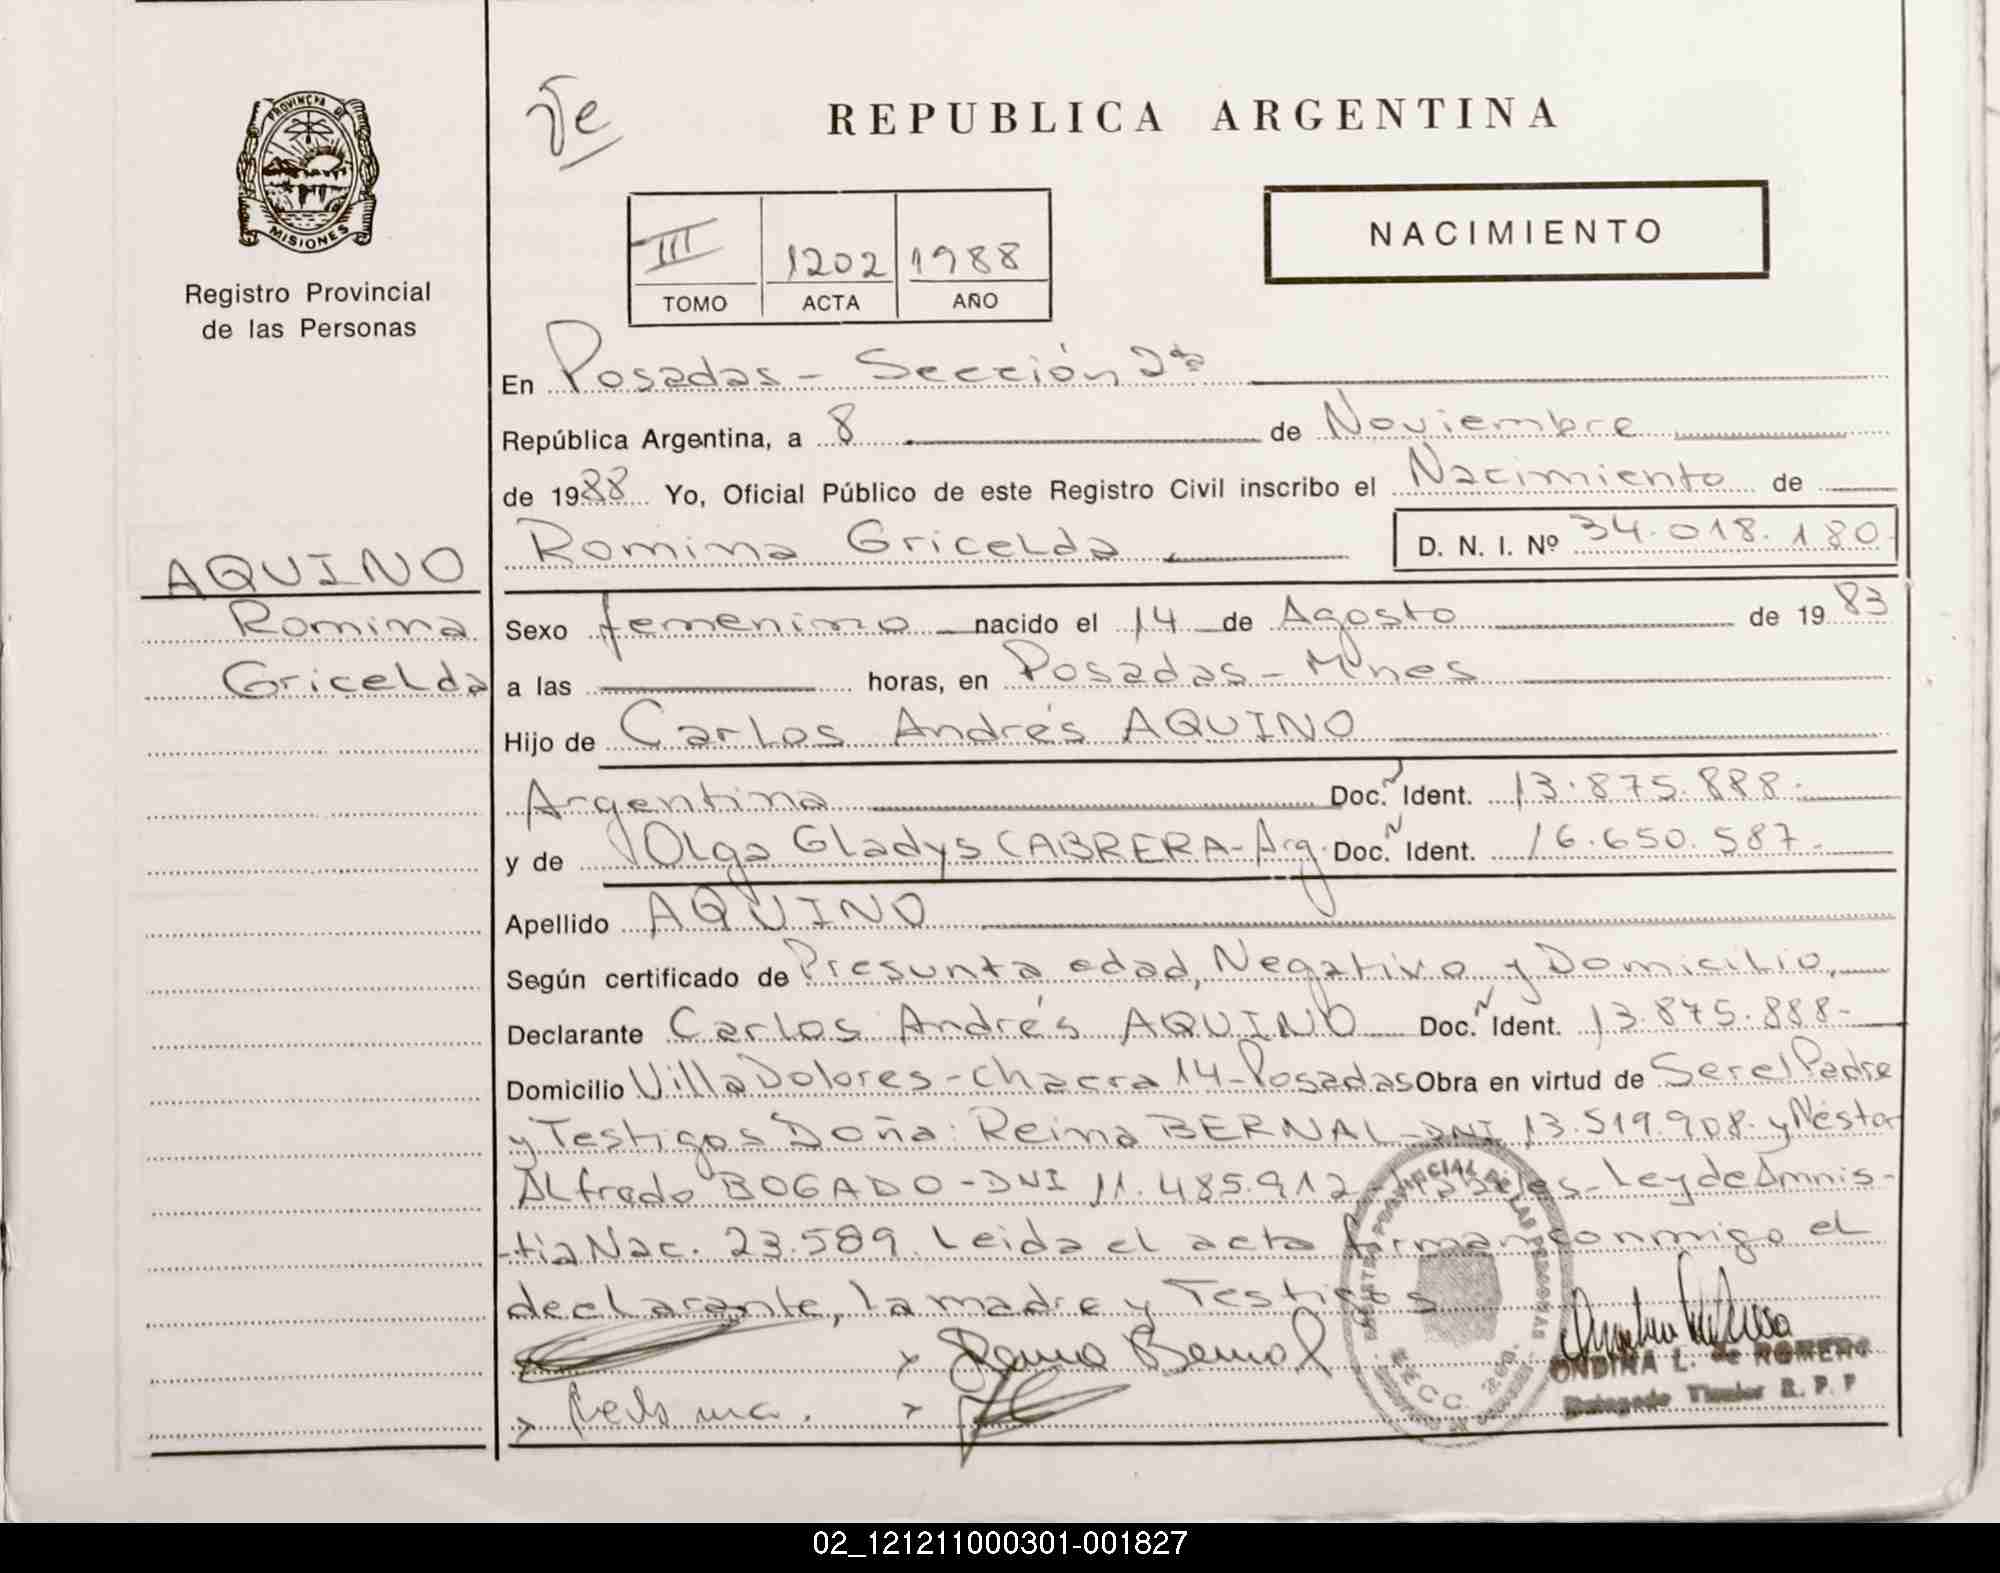 PROVINCIA DE
MISIONES
Registro Provincial
de las Personas
REPUBLICA ARGENTINA
NACIMIENTO
III 1202 1988
TOMO ACTA AÑO
En Posadas - Sección 2da
República Argentina, a 8 de Noviembre
de 1988 Yo, Oficial Público de este Registro Civil inscribo el Nacimiento de
Romina Gricelda D. N. I. Nº 34.018.180
AQUINO
Romina
Gricelda
Sexo femenino nacido el 14 de Agosto de 1983
a las horas, en Posadas - Mnes
Hijo de Carlos Andrés AQUINO
Argentina Doc. Ident. 13.875.888.
y de Olga Gladys CABRERA - Arg. Doc. Ident. 16.650.587.
Apellido AQUINO
Según certificado de Presunta edad, Negativo y Domicilio,
Declarante Carlos Andrés AQUINO Doc. Ident. 13.875.888-
Domicilio Villa Dolores - Chacra 14 - Posadas Obra en virtud de Ser el Padre
y Testigos Doña: Reina BERNAL - DNI 13.519.908. y Néstor
Alfredo BOGADO - DNI 11.485.912 - Ley de Amnis-
-tia Nac. 23.589. Leida el acta firman conmigo el
declarante, la madre y Testigos
Reina Bernal
ONDINA L. de ROMERO
Delegado Titular R. P. P
02_121211000301-001827